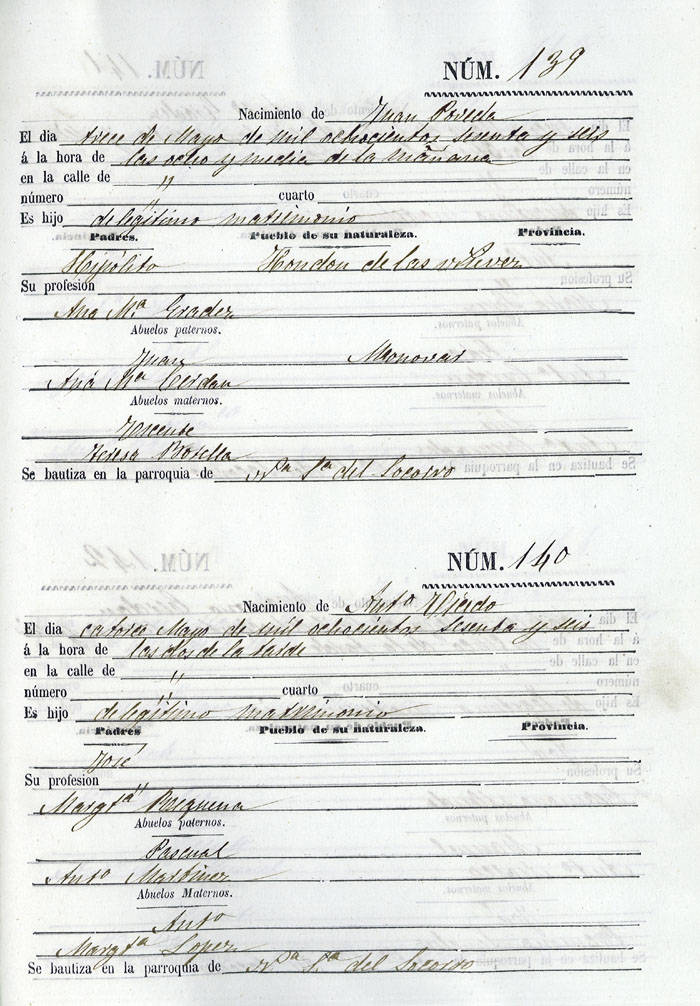 NÚM. 139
Nacimiento de Juan Poveda
El dia trece de Mayo de mil ochocientos sesenta y seis
á la hora de las ocho y media de la mañana
en la calle de "
número " cuarto
Es hijo de legitimo matrimonio
Padres. Pueblo de su naturaleza. Provincia.
Hipólito Hondon de las
Su profesion
Ana Mª
Abuelos paternos.
Juan Monovar
Ana Mª Cerdan
Abuelos maternos.
Vicente
Teresa Botella
Se bautiza en la parroquia de Nª Sª del Socorro
NÚM. 140
Nacimiento de Antº
El dia catorce Mayo de mil ochocientos sesenta y seis
á la hora de las dos de la tarde
en la calle de
número " cuarto
Es hijo de legitimo matrimonio
Padres Pueblo de su naturaleza. Provincia.
José
Su profesion "
Margtª
Abuelos paternos.
Pascual
Antª Martinez
Abuelos Maternos.
Antº
Margtª Lopez
Se bautiza en la parroquia de Nª Sª del Socorro